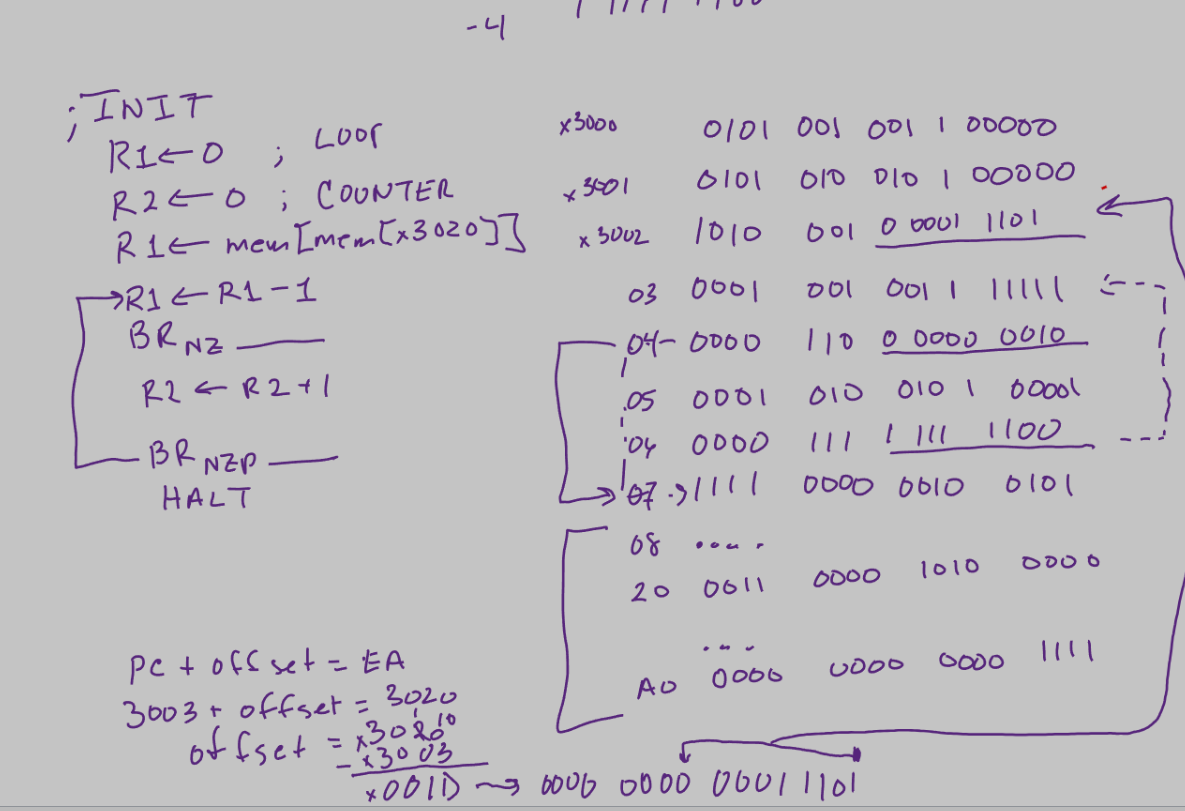 -4
; INIT
R1 ← 0 ; LOOP
R2 ← 0 ; COUNTER
R1 ← mem[mem[x3020]]
R1 ← R1 - 1
BR NZ ____
R2 ← R2 + 1
BR NZP ____
HALT
x3000 0101 001 001 1 00000
x3001 0101 010 010 1 00000
x3002 1010 001 0 0001 1101
03 0001 001 001 1 11111
04 0000 110 0 0000 0010
05 0001 010 010 1 00001
04 0000 111 1 111 1100
07 → 1111 0000 0010 0101
08 ....
20 0011 0000 1010 0000
...
A0 0000 0000 0000 1111
PC + offset = EA
3003 + offset = 3020
offset = x3020
1 10
- x3003
x001D → 0000 0000 0001 1101